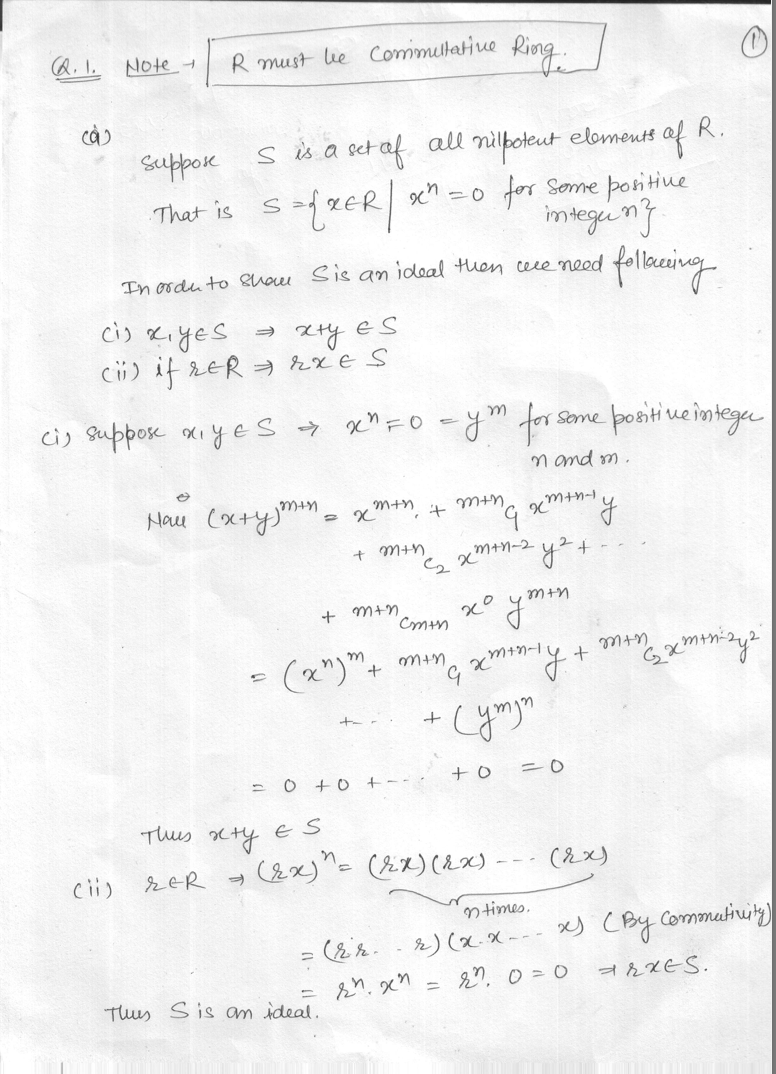 1
Q.1. Note → R must be Commutative Ring.
(a)
Suppose S is a set of all nilpotent elements of R.
That is S = {x∈R | xⁿ = 0 for some positive
integer n}
In order to show S is an ideal then we need following
(i) x, y∈S ⇒ x+y ∈ S
(ii) if r∈R ⇒ rx ∈ S
(i) Suppose x, y ∈ S ⇒ xⁿ = 0 = yᵐ for some positive integer
n and m.
Now (x+y)ᵐ⁺ⁿ = xᵐ⁺ⁿ + ᵐ⁺ⁿC₁ xᵐ⁺ⁿ⁻¹ y
+ ᵐ⁺ⁿC₂ xᵐ⁺ⁿ⁻² y² + ...
+ ᵐ⁺ⁿCₘ₊ₙ x⁰ yᵐ⁺ⁿ
= (xⁿ)ᵐ + ᵐ⁺ⁿC₁ xᵐ⁺ⁿ⁻¹ y + ᵐ⁺ⁿC₂ xᵐ⁺ⁿ⁻² y²
+ ... + (yᵐ)ⁿ
= 0 + 0 + ... + 0 = 0
Thus x+y ∈ S
(ii) r∈R ⇒ (rx)ⁿ = (rx)(rx) --- (rx)
n times.
= (r.r. .. r)(x.x --- x) (By Commutivity)
= rⁿ. xⁿ = rⁿ. 0 = 0 ⇒ rx∈S.
Thus S is an ideal.